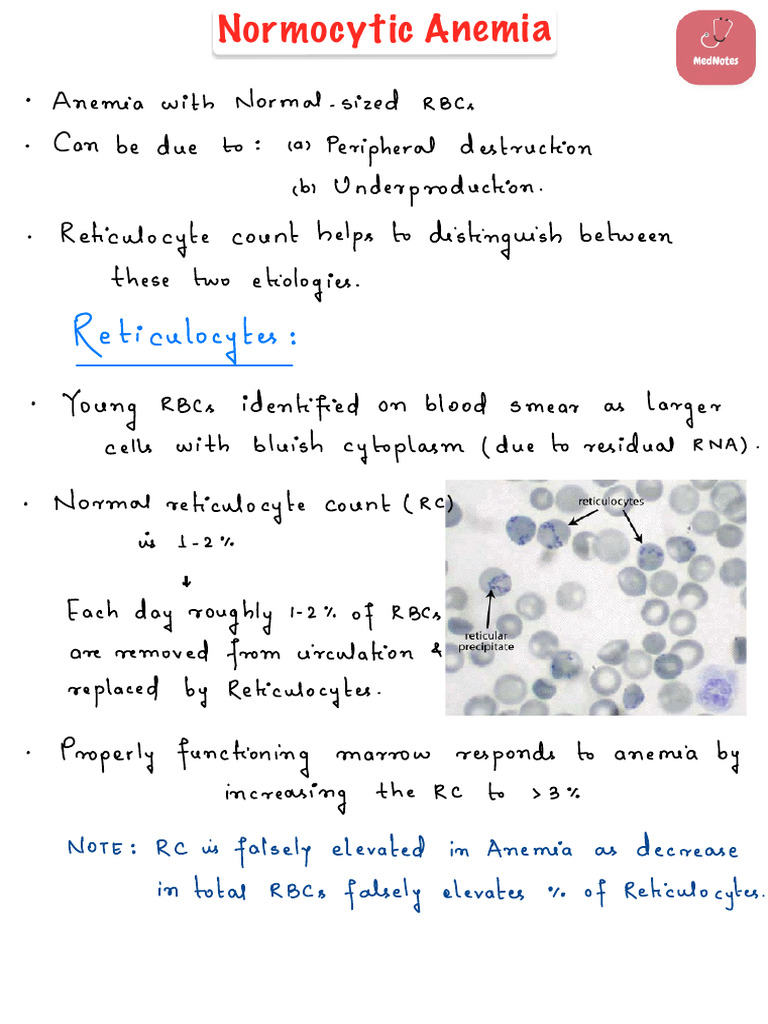 Normocytic Anemia
MedNotes
• Anemia with Normal-sized RBCs
• Can be due to: (a) Peripheral destruction
(b) Underproduction.
• Reticulocyte count helps to distinguish between
these two etiologies.
Reticulocytes:
• Young RBCs identified on blood smear as larger
cells with bluish cytoplasm (due to residual RNA).
• Normal reticulocyte count (RC)
is 1-2%
↓
Each day roughly 1-2% of RBCs
are removed from circulation &
replaced by Reticulocytes.
reticulocytes
reticular
precipitate
• Properly functioning marrow responds to anemia by
increasing the RC to >3%
NOTE: RC is falsely elevated in Anemia as decrease
in total RBCs falsely elevates % of Reticulocytes.